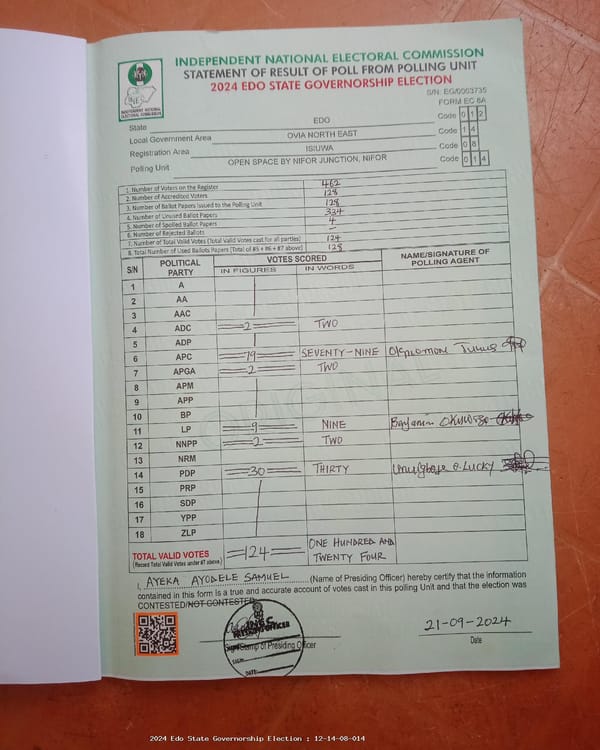 INDEPENDENT NATIONAL ELECTORAL COMMISSION
STATEMENT OF RESULT OF POLL FROM POLLING UNIT
2024 EDO STATE GOVERNORSHIP ELECTION
S/N: EG/0003735
FORM EC 8A
INEC
INDEPENDENT NATIONAL ELECTORAL COMMISSION
State EDO Code 0 1 2
Local Government Area OVIA NORTH EAST Code 1 4
Registration Area ISIUWA Code 0 8
Polling Unit OPEN SPACE BY NIFOR JUNCTION, NIFOR Code 0 1 4
1. Number of Voters on the Register 462
2. Number of Accredited Voters 128
3. Number of Ballot Papers Issued to the Polling Unit 128
4. Number of Unused Ballot Papers 334
5. Number of Spoiled Ballot Papers 4
6. Number of Rejected Ballots –
7. Number of Total Valid Votes (Total Valid Votes cast for all parties) 124
8. Total Number of Used Ballots Papers (Total of #5 + #6 + #7 above) 128
S/N POLITICAL PARTY VOTES SCORED NAME/SIGNATURE OF POLLING AGENT
IN FIGURES IN WORDS
1 A
2 AA
3 AAC
4 ADC =2= TWO
5 ADP
6 APC =79= SEVENTY-NINE
7 APGA =2= TWO
8 APM
9 APP
10 BP
11 LP =9= NINE
12 NNPP =2= TWO
13 NRM
14 PDP =30= THIRTY LUCKY
15 PRP
16 SDP
17 YPP
18 ZLP
TOTAL VALID VOTES =124= ONE HUNDRED AND TWENTY FOUR
(Record Total Valid Votes under #7 above)
I, AYEKA AYODELE SAMUEL (Name of Presiding Officer) hereby certify that the information
contained in this form is a true and accurate account of votes cast in this polling Unit and that the election was
CONTESTED/NOT CONTESTED.
INEC
PRESIDING OFFICER
Sign/Stamp of Presiding Officer
SIGN:
DATE:
21-09-2024
Date
2024 Edo State Governorship Election : 12-14-08-014